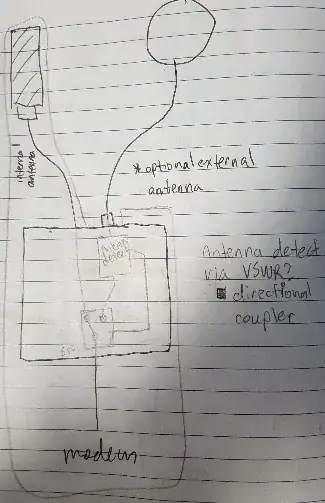 internal
antenna
*optional external
antenna
detect
Antenna detect
via VSWR?
directional
coupler
modem